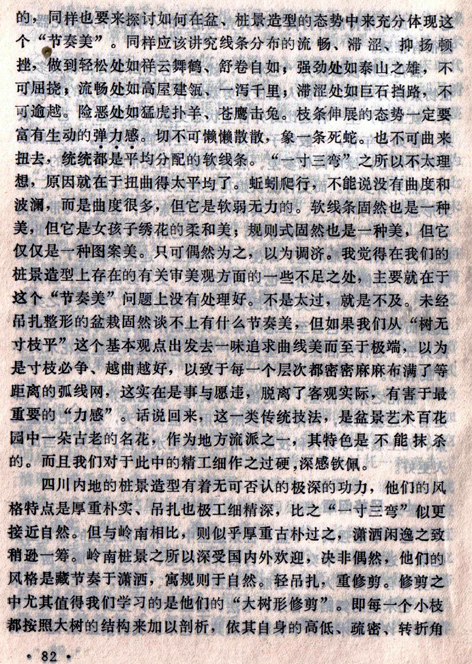 的，同样也要来探讨如何在盆、桩景造型的态势中来充分体现这
个“节奏美”。同样应该讲究线条分布的流畅、滞涩、抑扬顿
挫，做到轻松处如祥云舞鹤、舒卷自如；强劲处如泰山之雄，不
可屈挠；流畅处如高屋建瓴、一泻千里；滞涩处如巨石挡路，不
可逾越。险恶处如猛虎扑羊、苍鹰击兔。枝条伸展的态势一定要
富有生动的弹力感。切不可懒懒散散，象一条死蛇。也不可曲来
扭去，统统都是平均分配的软线条。“一寸三弯”之所以不太理
想，原因就在于扭曲得太平均了。蚯蚓爬行，不能说没有曲度和
波澜，而是曲度很多，但它是软弱无力的。软线条固然也是一种
美，但它是女孩子绣花的柔和美；规则式固然也是一种美，但它
仅仅是一种图案美。只可偶然为之，以为调济。我觉得在我们的
桩景造型上存在的有关审美观方面的一些不足之处，主要就在于
这个“节奏美”问题上没有处理好。不是太过，就是不及。未经
吊扎整形的盆栽固然谈不上有什么节奏美，但如果我们从“树无
寸枝平”这个基本观点出发去一味追求曲线美而至于极端，以为
是寸枝必争、越曲越好，以致于每一个层次都密密麻麻布满了等
距离的弧线网，这实在是事与愿违，脱离了客观实际，有害于最
重要的“力感”。话说回来，这一类传统技法，是盆景艺术百花
园中一朵古老的名花，作为地方流派之一，其特色是不能抹杀
的。而且我们对于此中的精工细作之过硬，深感钦佩。
四川内地的桩景造型有着无可否认的极深的功力，他们的风
格特点是厚重朴实、吊扎也极工细精深，比之“一寸三弯”似更
接近自然。但与岭南相比，则似乎厚重古朴过之，潇洒闲逸之致
稍逊一筹。岭南桩景之所以深受国内外欢迎，决非偶然，他们的
风格是藏节奏于潇洒，寓规则于自然。轻吊扎，重修剪。修剪之
中尤其值得我们学习的是他们的“大树形修剪”。即每一个小枝
都按照大树的结构来加以剖析，依其自身的高低、疏密、转折角
· 82 ·